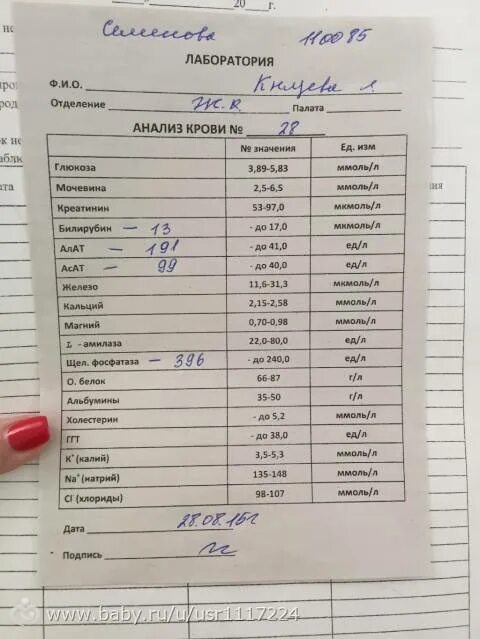 20 г.
Семенова 110085
ЛАБОРАТОРИЯ
Ф.И.О. Князева Л
Отделение Ж.к Палата
АНАЛИЗ КРОВИ № 28
№ значения Ед. изм
Глюкоза 3,89-5,83 ммоль/л
Мочевина 2,5-6,5 ммоль/л
Креатинин 53-97,0 мкмоль/л
Билирубин – 13 - до 17,0 мкмоль/л
АлАТ – 191 - до 41,0 ед/л
АсАТ – 99 - до 40,0 ед/л
Железо 11,6-31,3 мкмоль/л
Кальций 2,15-2,58 ммоль/л
Магний 0,70-0,98 ммоль/л
- амилаза 22,0-80,0 ед/л
Щел. фосфатаза – 396 - до 240,0 ед/л
О. белок 66-87 г/л
Альбумины 35-50 г/л
Холестерин - до 5,2 ммоль/л
ГГТ - до 38,0 ед/л
К⁺ (калий) 3,5-5,3 ммоль/л
Na⁺ (натрий) 135-148 ммоль/л
Cl⁻ (хлориды) 98-107 ммоль/л
Дата 28.08.15г
Подпись
www.baby.ru/u/usr1117224